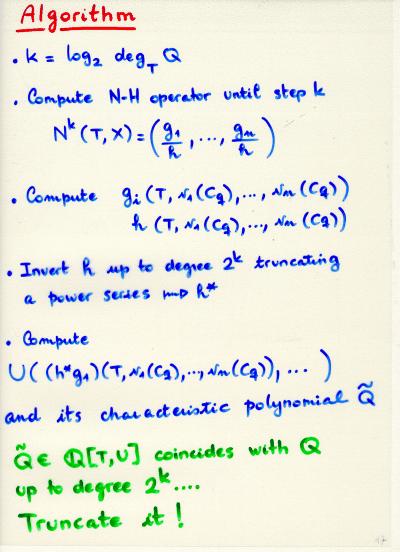 Algorithm
• k = log₂ deg_T Q
• Compute N-H operator until step k
N^k (T, X) = (g₁/h, ..., gₙ/h)
• Compute gᵢ (T, v₁(C_q), ..., vₘ(C_q))
h (T, v₁(C_q), ..., vₘ(C_q))
• Invert h up to degree 2^k truncating
a power series ⟿ h*
• Compute
U( (h*g₁)(T, v₁(C_q), ..., vₘ(C_q)), ... )
and its characteristic polynomial Q̃
Q̃ ∈ ℚ[T,U] coincides with Q
up to degree 2^k ....
Truncate it !